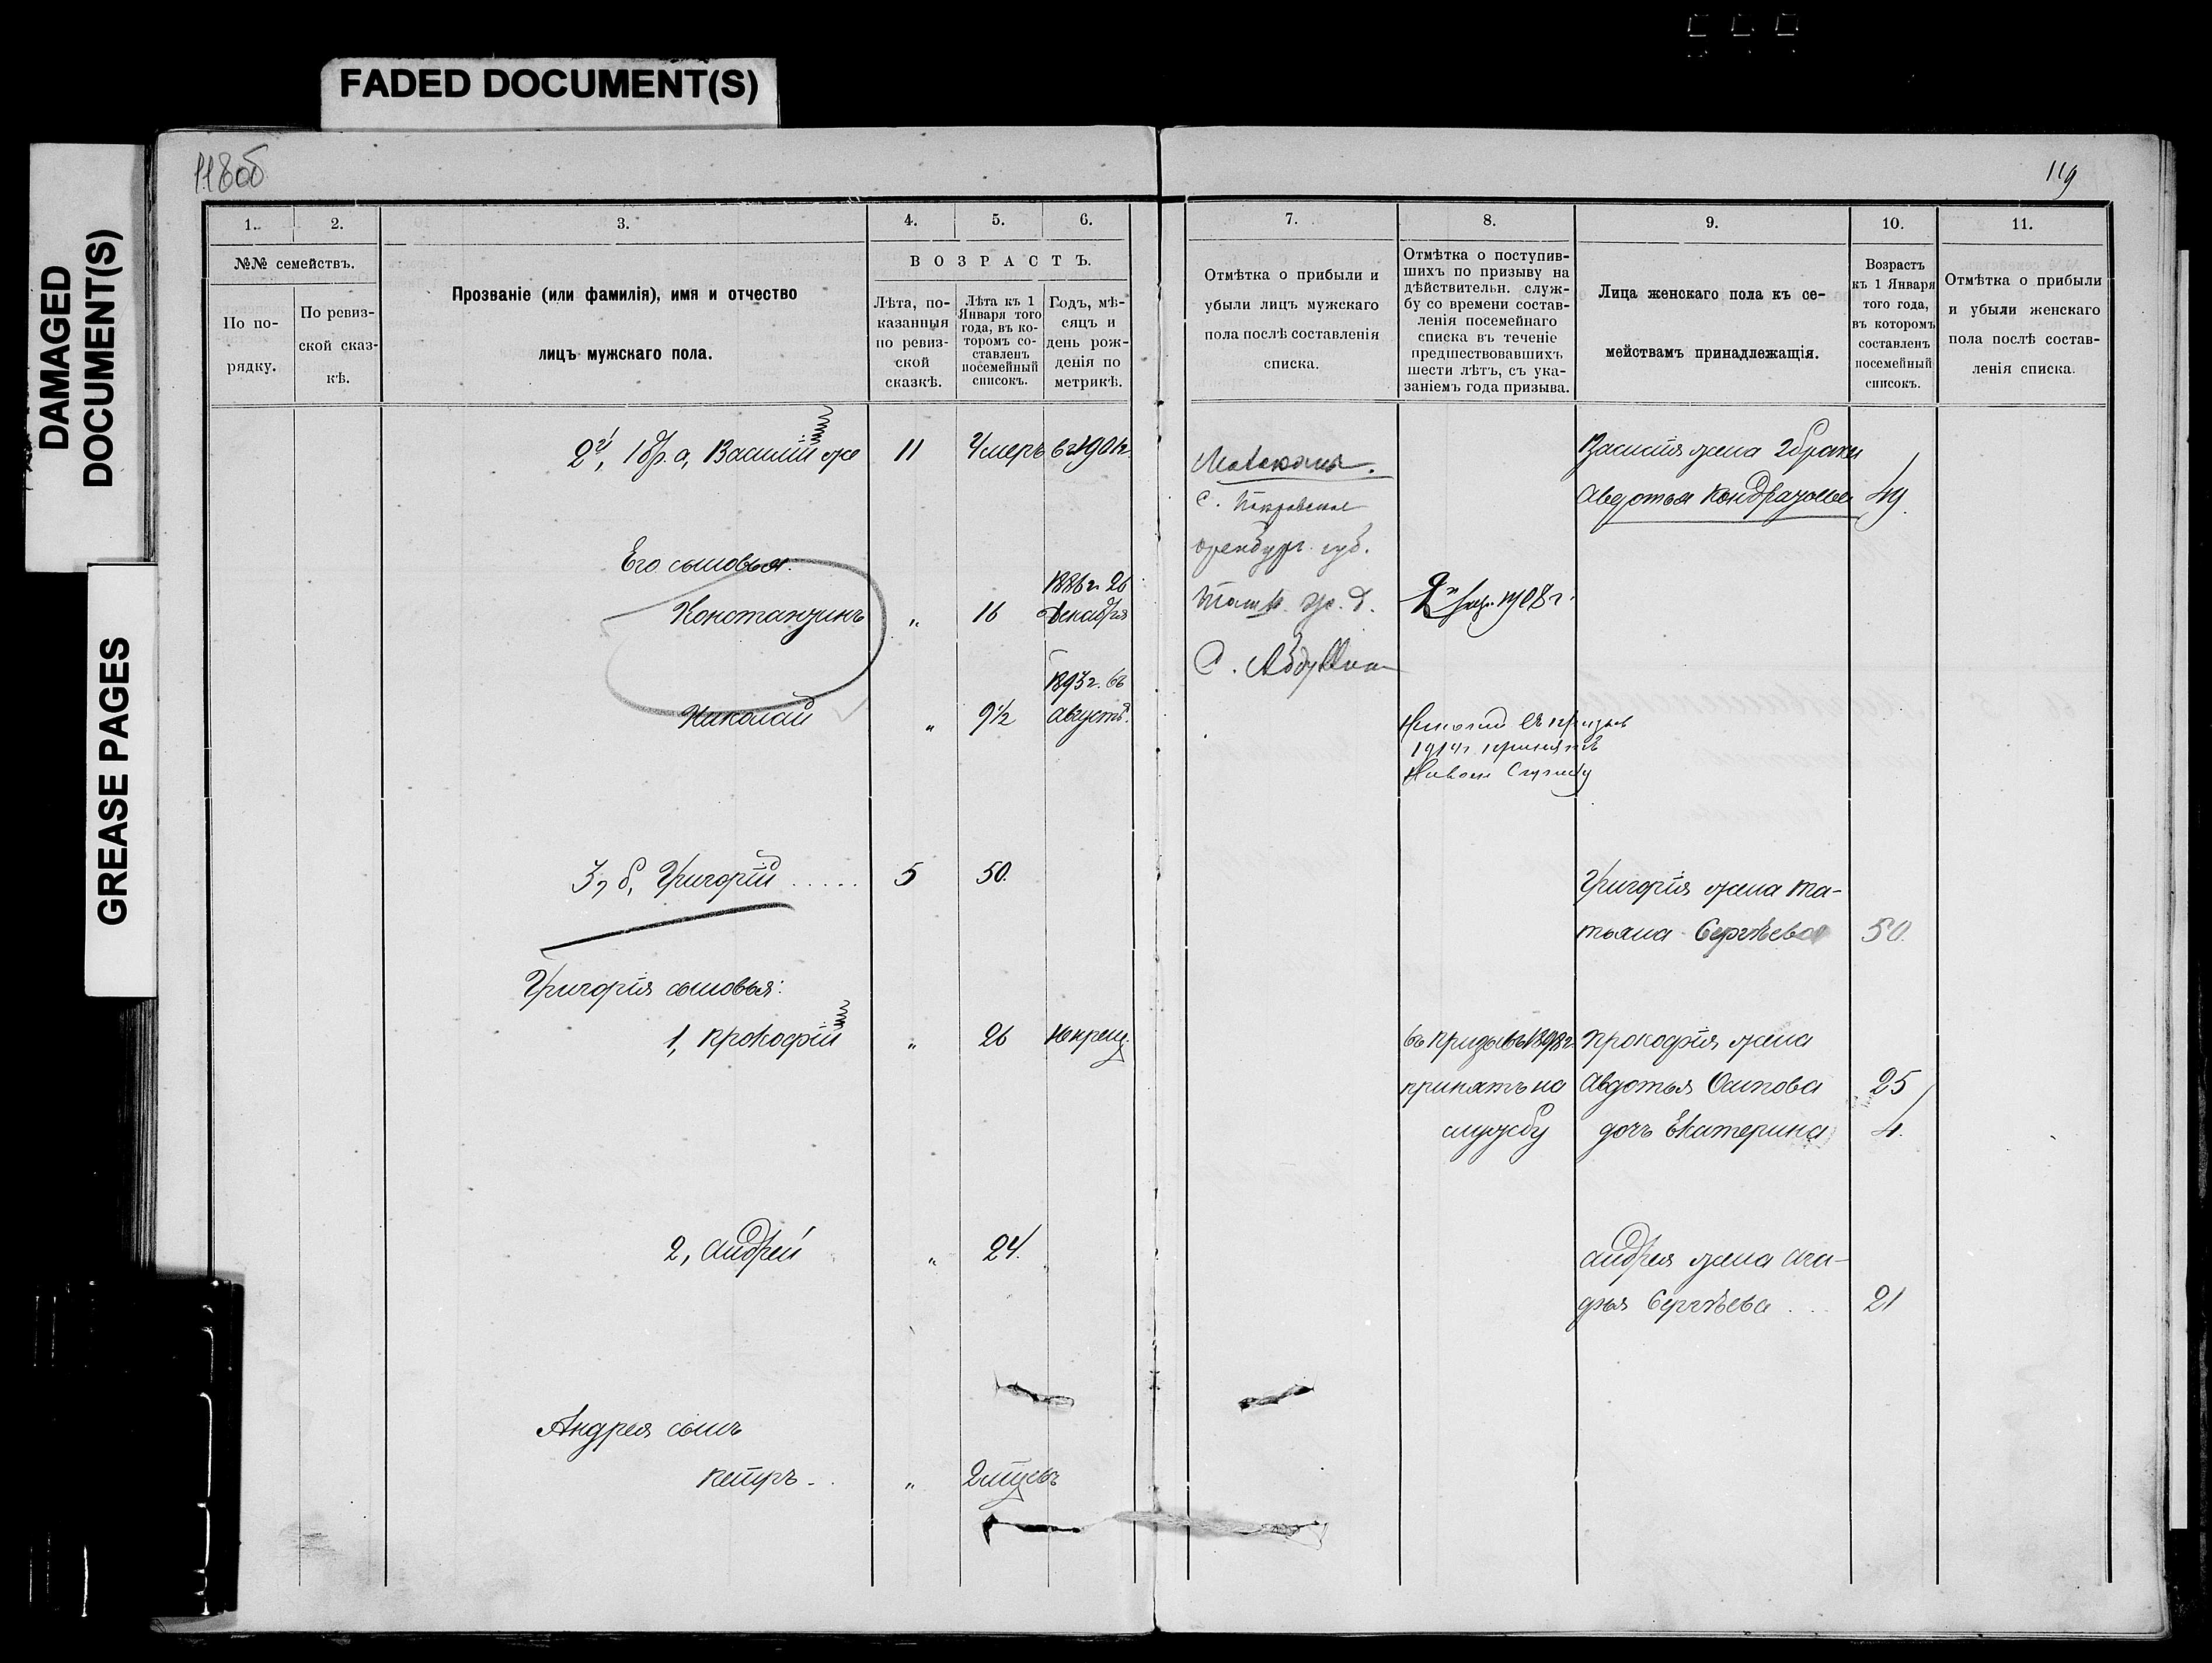 FADED DOCUMENT(S)
DAMAGED
DOCUMENT(S)
GREASE PAGES
118об
119
1.
2.
3.
4.
5.
6.
7.
8.
9.
10.
11.
№№ семействъ.
По по-
рядку.
По ревиз-
ской сказ-
кѣ.
Прозваніе (или фамилія), имя и отчество
лицъ мужскаго пола.
ВОЗРАСТЪ.
Лѣта, по-
казанныя
по ревиз-
ской
сказкѣ.
Лѣта къ 1
Января того
года, въ ко-
торомъ со-
ставленъ
посемейный
списокъ.
Годъ, мѣ-
сяцъ и
день рож-
денія по
метрикѣ.
Отмѣтка о прибыли и
убыли лицъ мужскаго
пола послѣ составленія
списка.
Отмѣтка о поступив-
шихъ по призыву на
дѣйствительн. служ-
бу со времени состав-
ленія посемейнаго
списка въ теченіе
предшествовавшихъ
шести лѣтъ, съ ука-
заніемъ года призыва.
Лица женскаго пола къ се-
мействамъ принадлежащія.
Возрастъ
къ 1 Января
того года,
въ которомъ
составленъ
посемейный
списокъ.
Отмѣтка о прибыли
и убыли женскаго
пола послѣ состав-
ленія списка.
2й, 1 бр. а, Василий 11 Умеръ в 1901г.
Василия жена 2 брака
Авдотья Кондратьева 49
С. Покровское
оренбург. губ.
Его сыновья.
Константинъ „ 16 1886 г. 26 Декабря
1908 г.
С.
Николай „ 9½ 1893 г. въ Августѣ.
Николай въ призыв
1914 г. принятъ
На воен Службу
3, б, Григорій ..... 5 50.
Григорія жена Та-
тьяна Сергѣева 50.
Григорія сыновья:
1, Прокофій „ 26
въ призывъ 1898 г.
принятъ на
службу
Прокофія жена
Авдотья Осипова 25
дочь Екатерина 4.
2, Андрей „ 24.
Андрея жена Ага-
фья Сергѣева 21
Андрея сынъ
Петръ „